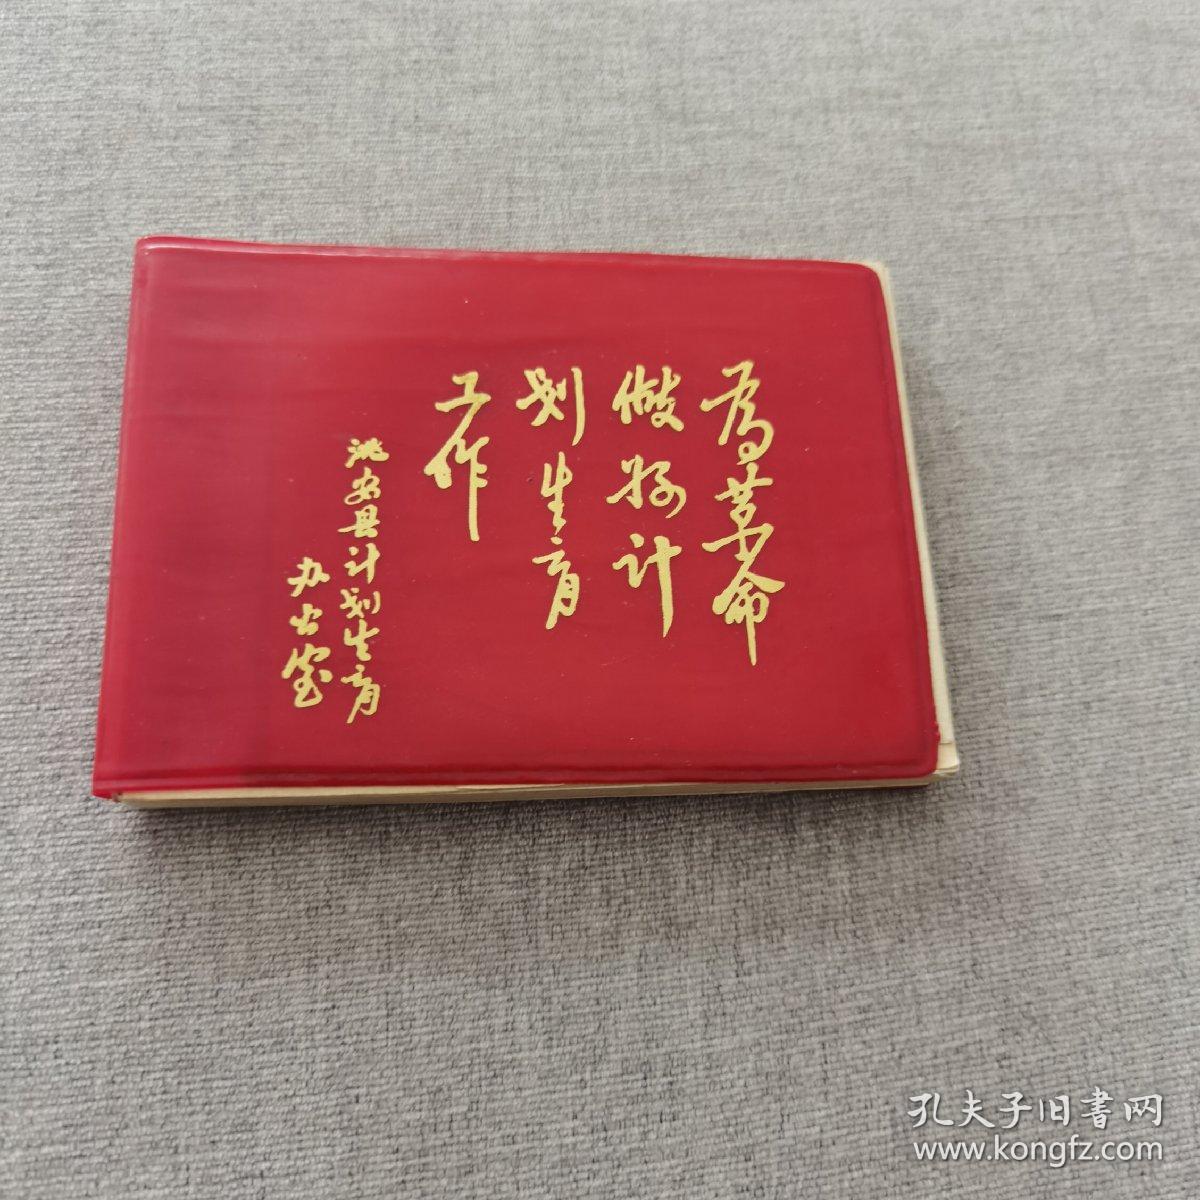 为革命
做好计
划生育
工作
洮安县计划生育
办公室
孔夫子旧書网
www.kongfz.com